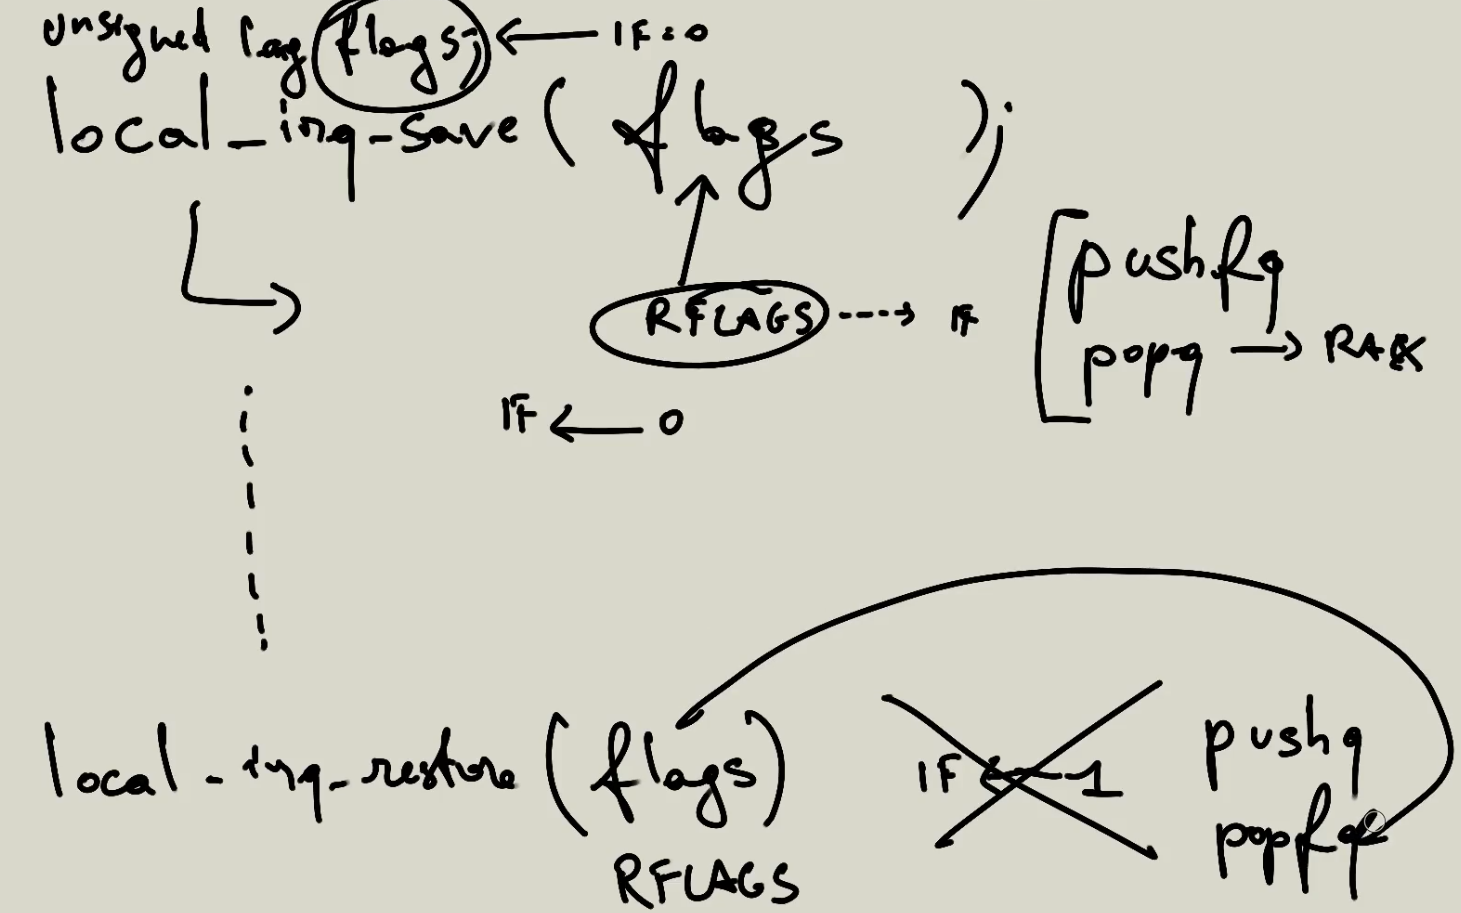 unsigned long flags; ← IF=0
local_irq_save ( flags );
RFLAGS ⇢ IF
pushfq
popq → RAX
IF ← 0
local_irq_restore (flags)
IF ← 1
pushq
popfq
RFLAGS